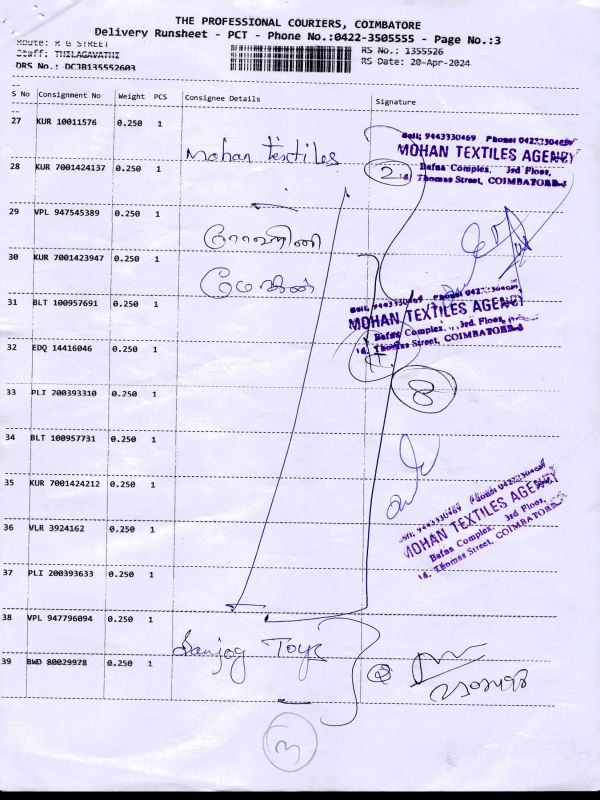 THE PROFESSIONAL COURIERS, COIMBATORE
Delivery Runsheet - PCT - Phone No.:0422-3505555 - Page No.:3
Route: R G STREET
Staff: THILAGAVATHI
DRS No.: DCJB135552603
RS No.: 1355526
RS Date: 20-Apr-2024
S No Consignment No Weight PCS Consignee Details Signature
27 KUR 10011576 0.250 1
Mohan textiles
Cell: 9443330469 Phone: 04222330469
MOHAN TEXTILES AGENCY
Bafna Complex, 3rd Floor,
Thomas Street, COIMBATORE-1
28 KUR 7001424137 0.250 1
2
29 VPL 947545389 0.250 1
30 KUR 7001423947 0.250 1
31 BLT 100957691 0.250 1
Cell: 9443330469 Phone:
MOHAN TEXTILES AGENCY
Bafna Complex, 3rd Floor,
Thomas Street, COIMBATORE-1
32 EDQ 14416046 0.250 1
33 PLI 200393310 0.250 1
8
34 BLT 100957731 0.250 1
35 KUR 7001424212 0.250 1
36 VLR 3924162 0.250 1
MOHAN TEXTILES AGENCY
Bafna Complex, 3rd Floor,
Thomas Street, COIMBATORE
37 PLI 200393633 0.250 1
38 VPL 947796094 0.250 1
Sanjog Toys
39 BWD 80029978 0.250 1
2
3